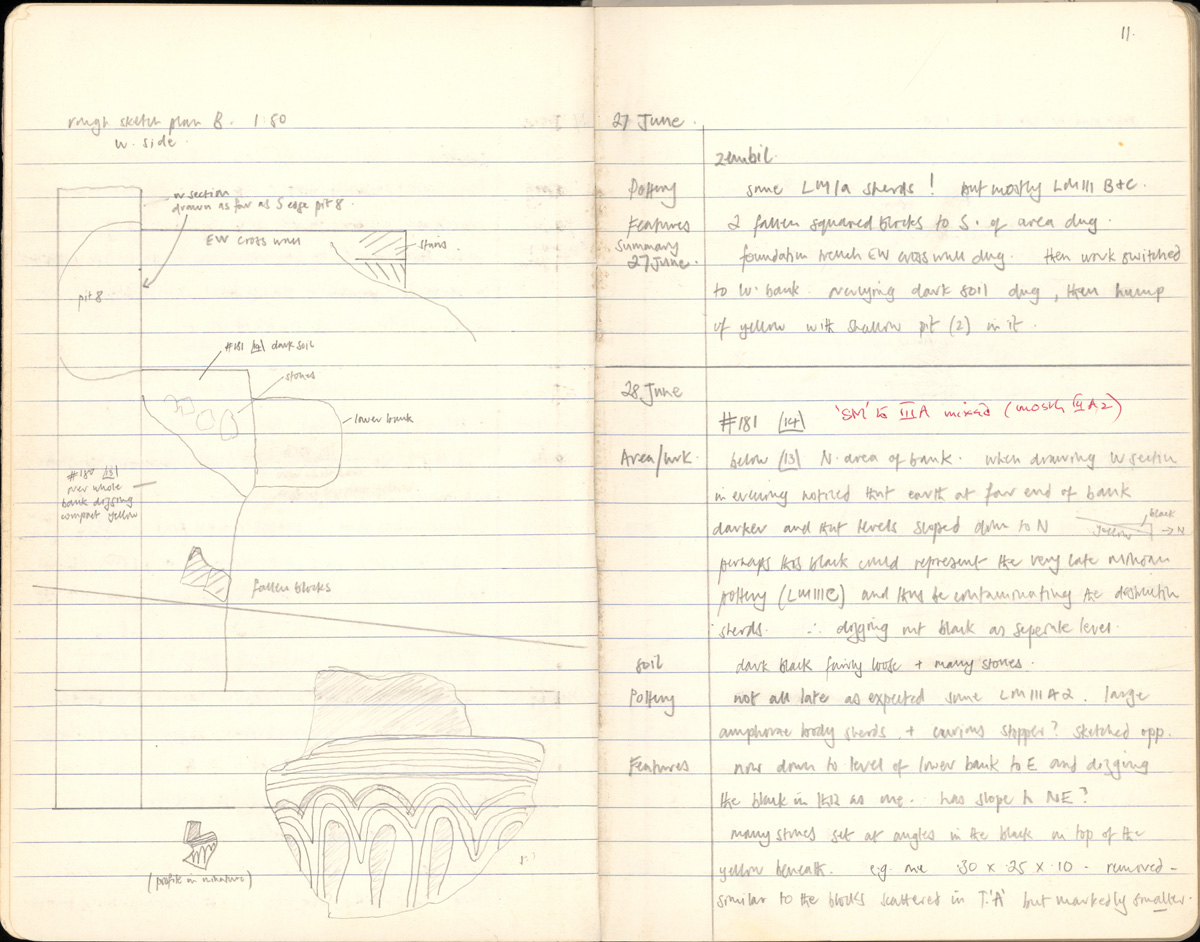 rough sketch plan B. 1:80
W. side
W section
drawn as far as S edge pit 8.
EW cross wall
stairs.
pit 8
#181 [14] dark soil
stones
lower bank
#180 [13]
over whole
bank digging
compact yellow
fallen blocks
(profile in miniature)
11.
27 June.
zembil.
Pottery some LM1a sherds! but mostly LMIII B+C.
Features 2 fallen squared blocks to S. of area dug.
Summary
27 June. foundation trench EW cross wall dug. Then work switched
to W. bank. dark soil dug, then hump
of yellow with shallow pit (2) in it.
28 June
#181 [14] 'SM' to IIIA mixed (mostly IIIA2)
Area/wk. below [13] N. area of bank. When drawing W section
in evening noticed that earth at far end of bank
darker and that levels sloped down to N
black
yellow → N
perhaps this black could represent the very late minoan
pottery (LMIIIC) and thus be contaminating the destruction
sherds. ∴ digging out black as seperate level.
Soil dark black fairly loose + many stones.
Pottery not all late as expected some LMIIIA2. large
amphorae body sherds. + curious stopper? sketched opp.
Features now down to level of lower bank to E and digging
the black in this as one. has slope to NE?
many stones set at angles in the black on top of the
yellow beneath. e.g. one .30 x .25 x .10 - removed -
similar to the blocks scattered in T.'A' but markedly smaller.